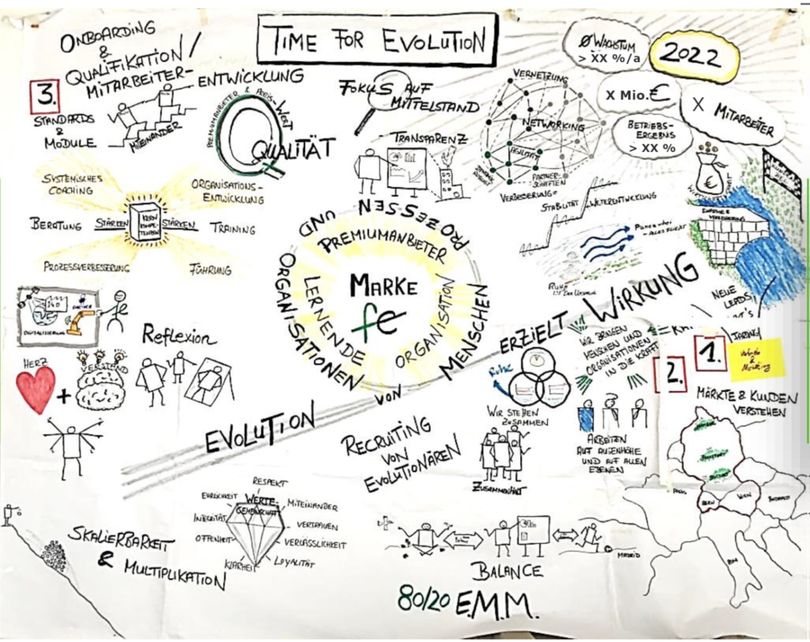 TIME FOR EVOLUTION
ONBOARDING
&
QUALIFIKATION/
MITARBEITER-
ENTWICKLUNG
3.
STANDARDS
&
MODULE
MITEINANDER
QUALITÄT
FOKUS AUF
MITTELSTAND
TRANSPARENZ
VERNETZUNG
NETWORKING
PARTNER-
SCHAFTEN
Ø WACHSTUM
> XX %/a
2022
X Mio.€
X MITARBEITER
BETRIEBS-
ERGEBNIS
> XX %
SYSTEMISCHES
COACHING
ORGANISATIONS-
ENTWICKLUNG
BERATUNG
STÄRKEN
KERN
KOMPE-
TENZEN
STÄRKEN
TRAINING
PROZESSVERBESSERUNG
FÜHRUNG
VERBESSERUNG
STABILITÄT
WEITERENTWICKLUNG
€
PROZESSEN UND
ORGANISATIONEN
VON
MENSCHEN
PREMIUMANBIETER
LERNENDE
ORGANISATION
MARKE
fe
ERZIELT WIRKUNG
NEUE
LEADS
DIGITALISIERUNG
Reflexion
HERZ
+
VERSTAND
EVOLUTION
RECRUITING
VON
EVOLUTIONÄREN
WIR BRINGEN
MENSCHEN UND
ORGANISATIONEN
IN DIE KRAFT
WIR STEHEN
ZUSAMMEN
ZUSAMMENHALT
ARBEITEN
AUF AUGENHÖHE
UND AUF ALLEN
EBENEN
2.
1.
MÄRKTE & KUNDEN
VERSTEHEN
PARIS
BERN
WIEN
BUKAREST
ROM
MADRID
RESPEKT
EHRLICHKEIT
WERTE-
GEMEINSCHAFT
MITEINANDER
INTEGRITÄT
VERTRAUEN
OFFENHEIT
VERLÄSSLICHKEIT
KLARHEIT
LOYALITÄT
SKALIERBARKEIT
& MULTIPLIKATION
BALANCE
80/20 E.M.M.